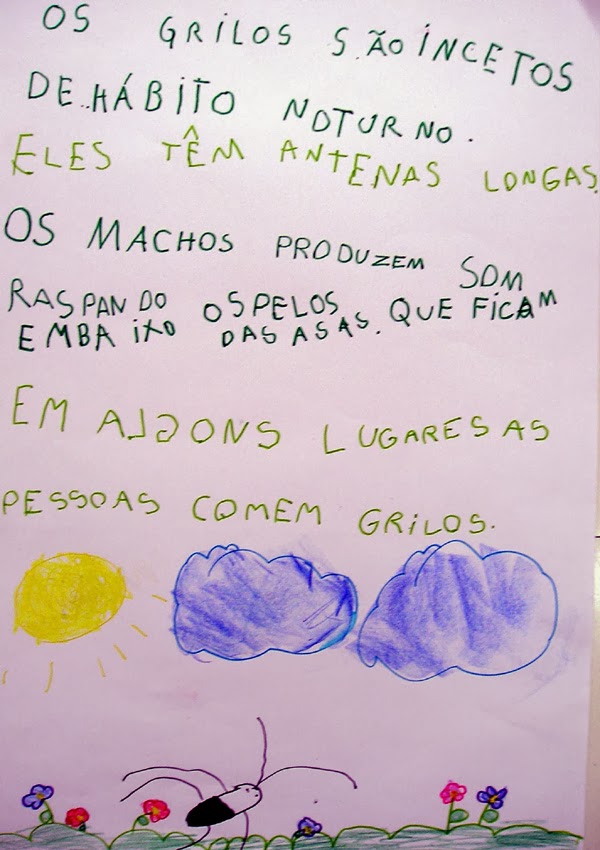 OS GRILOS SÃO INCETOS
DE HÁBITO NOTURNO.
ELES TÊM ANTENAS LONGAS.
OS MACHOS PRODUZEM SOM
RASPANDO OS PELOS QUE FICAM
EMBAIXO DAS ASAS.
EM ALGONS LUGARES AS
PESSOAS COMEM GRILOS.